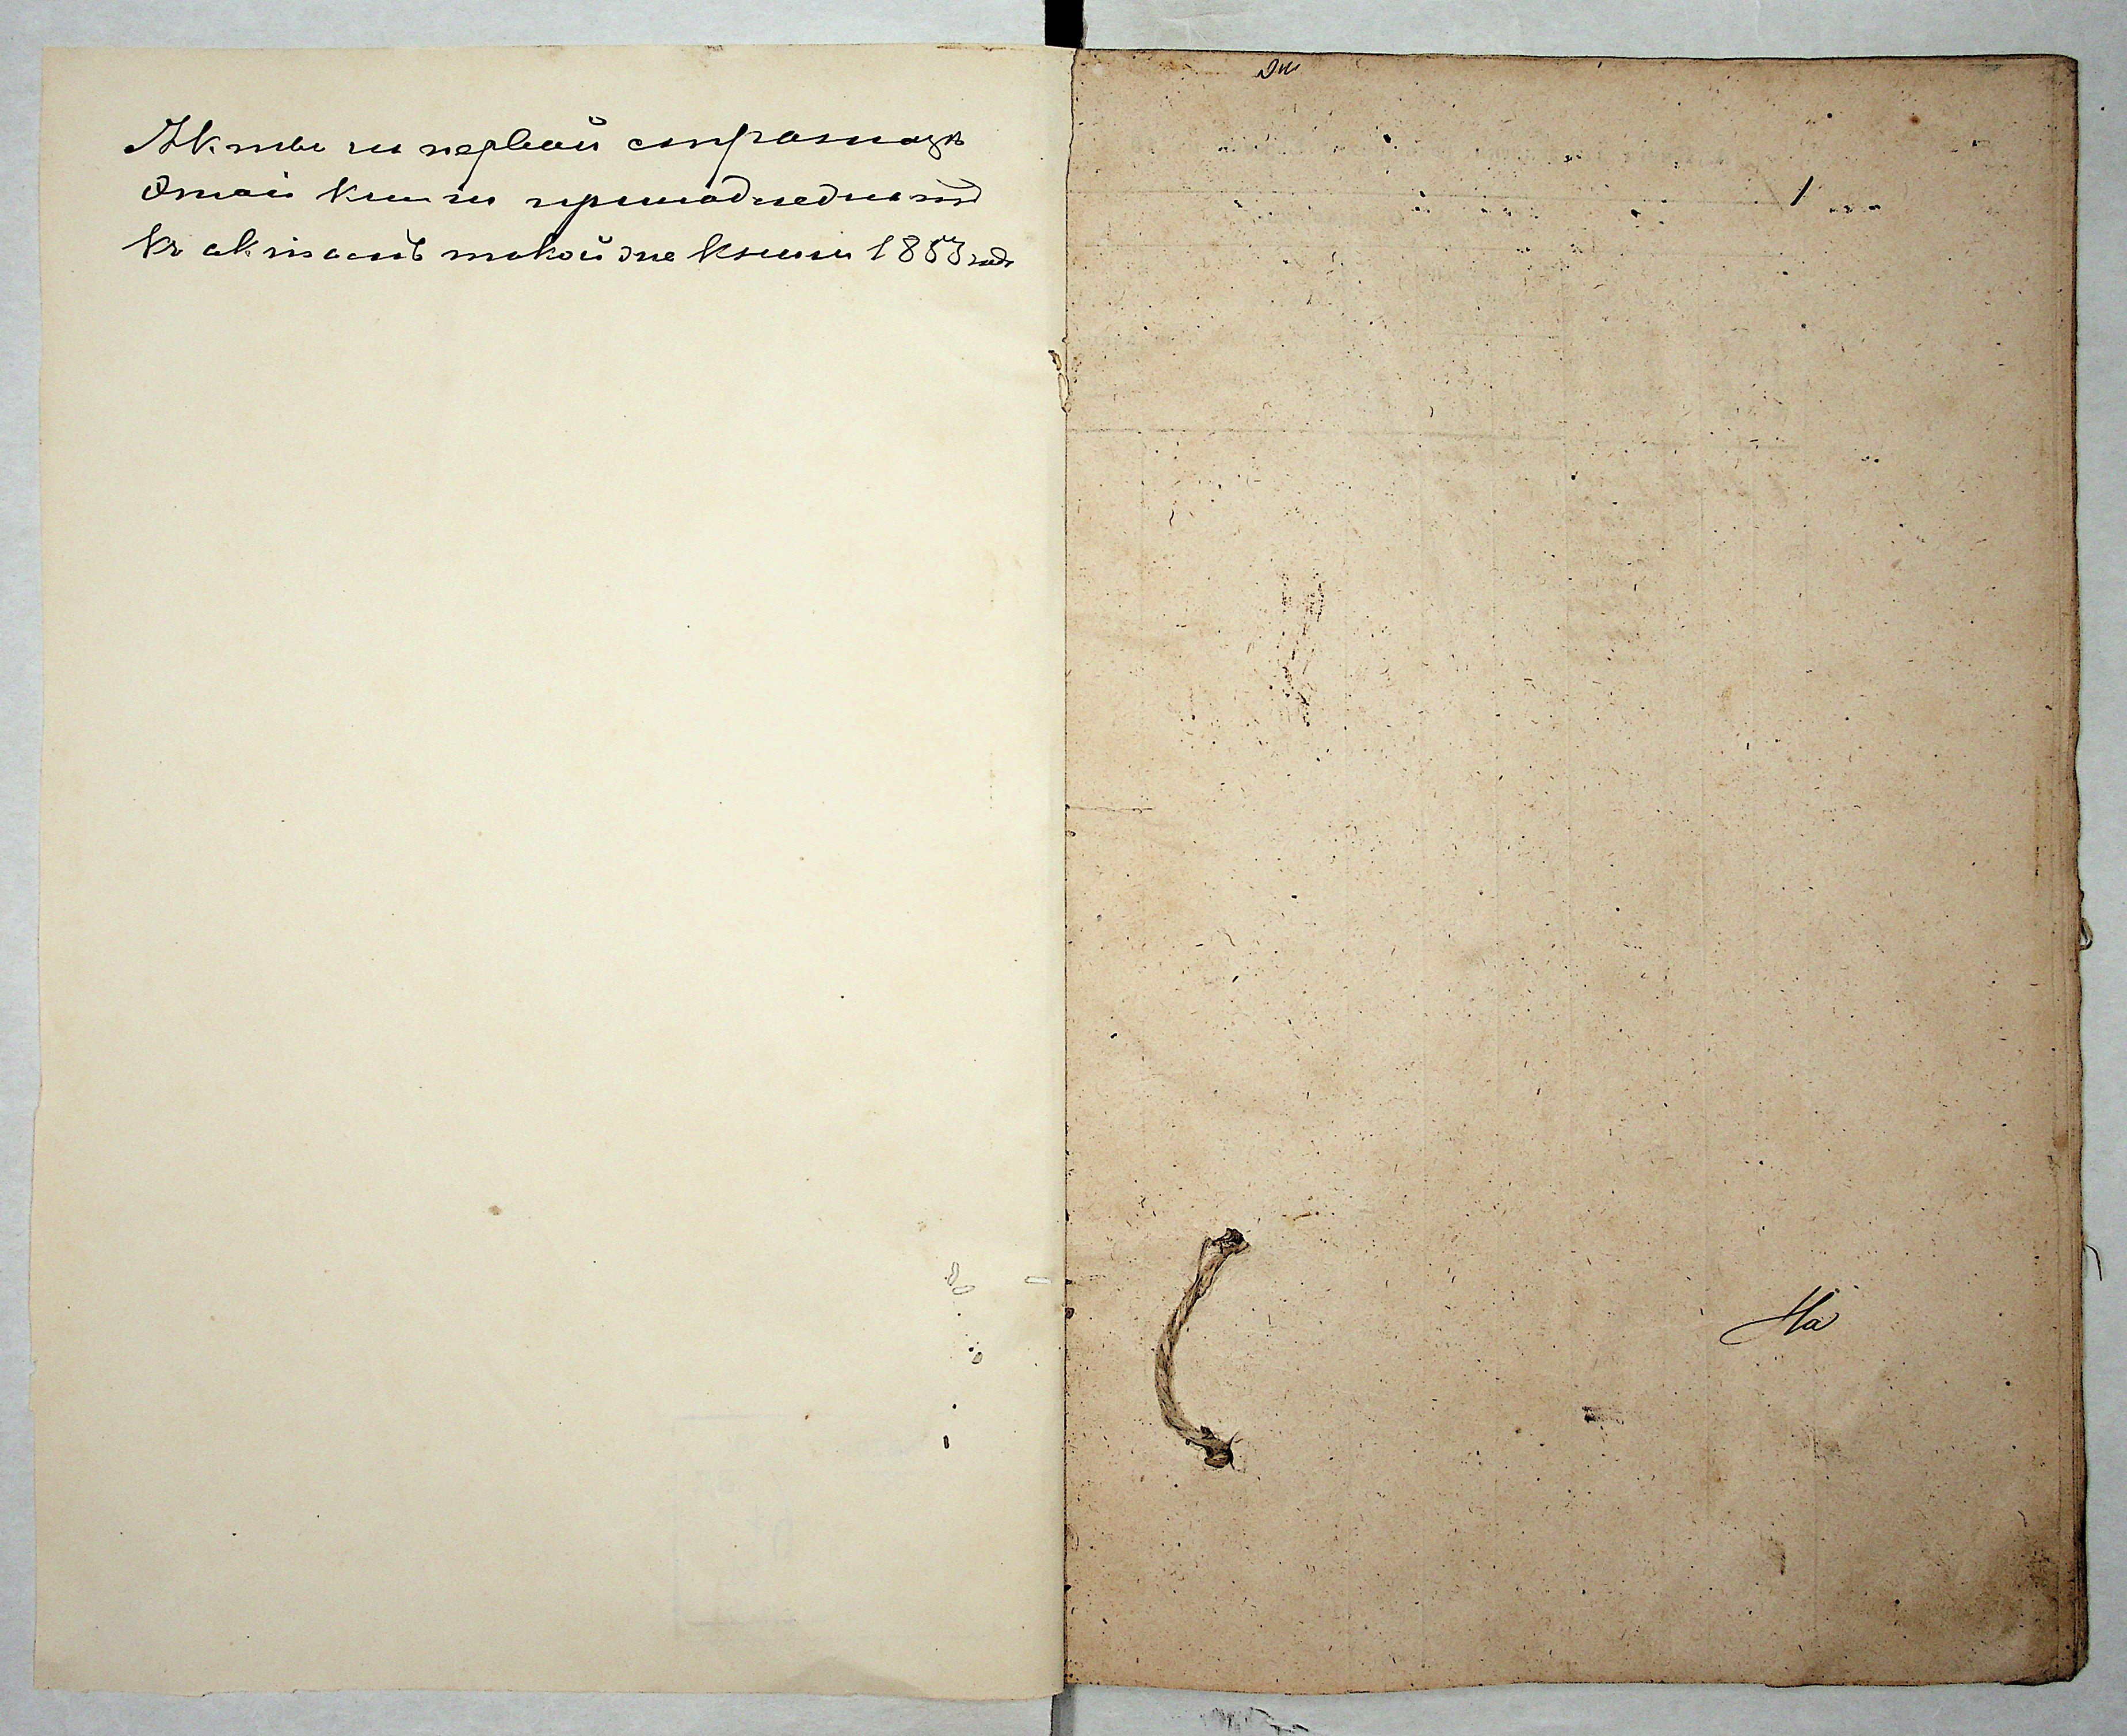 Акты на первой страницѣ
этой книги принадлежатъ
къ актамъ такой же книги 1853 года
1
На